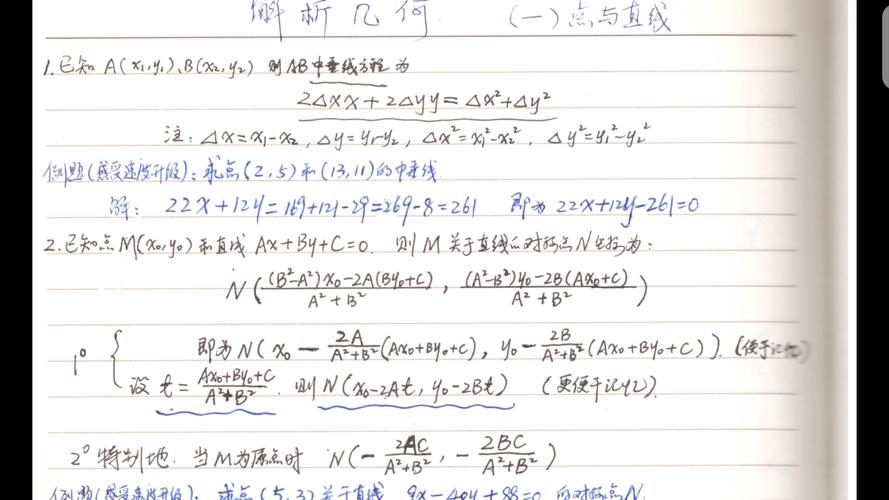 解析几何 (一)点与直线
1.已知 A(x₁,y₁)、B(x₂,y₂) 则AB中垂线方程为
2△x x + 2△y y = △x² + △y²
注: △x = x₁-x₂, △y = y₁-y₂, △x² = x₁²-x₂², △y² = y₁²-y₂²
例题(感受速度升级): 求点(2,5)和(13,11)的中垂线.
解: 22x+12y=169+121-29=269-8=261 即为 22x+12y-261=0
2.已知点M(x₀,y₀)和直线 Ax+By+C=0. 则M关于直线的对称点N坐标为:
N((B²-A²)x₀-2A(By₀+C)/A²+B², (A²-B²)y₀-2B(Ax₀+C)/A²+B²)
1° 即为 N(x₀ - 2A/A²+B² (Ax₀+By₀+C), y₀ - 2B/A²+B² (Ax₀+By₀+C)). (便于记忆)
设 t = Ax₀+By₀+C/A²+B². 则 N(x₀-2At, y₀-2Bt) (更便于记忆).
2° 特别地. 当M为原点时 N(- 2AC/A²+B², - 2BC/A²+B²)
例题(感受速度升级): 求点(5,3)关于直线 9x-40y+88=0 的对称点N.